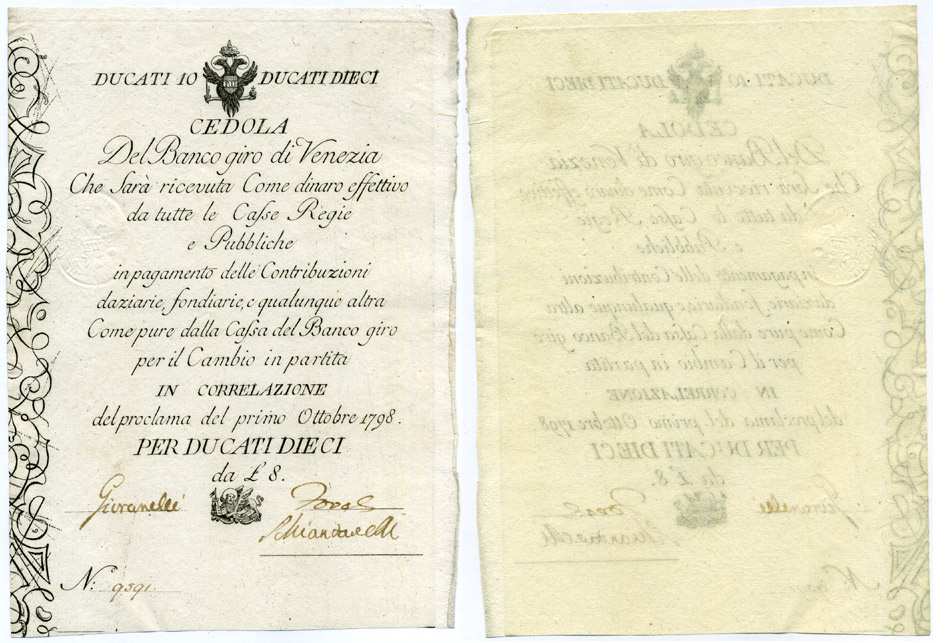 DUCATI 10 DUCATI DIECI
CEDOLA
Del Banco giro di Venezia
Che Sarà ricevuta Come dinaro effettivo
da tutte le Caſse Regie
e Pubbliche
in pagamento delle Contribuzioni
daziarie, fondiarie, e qualunque altra
Come pure dalla Caſsa del Banco giro
per il Cambio in partita
IN CORRELAZIONE
del proclama del primo Ottobre 1798.
PER DUCATI DIECI
da £ 8.
Giovanelli
N: 9391.